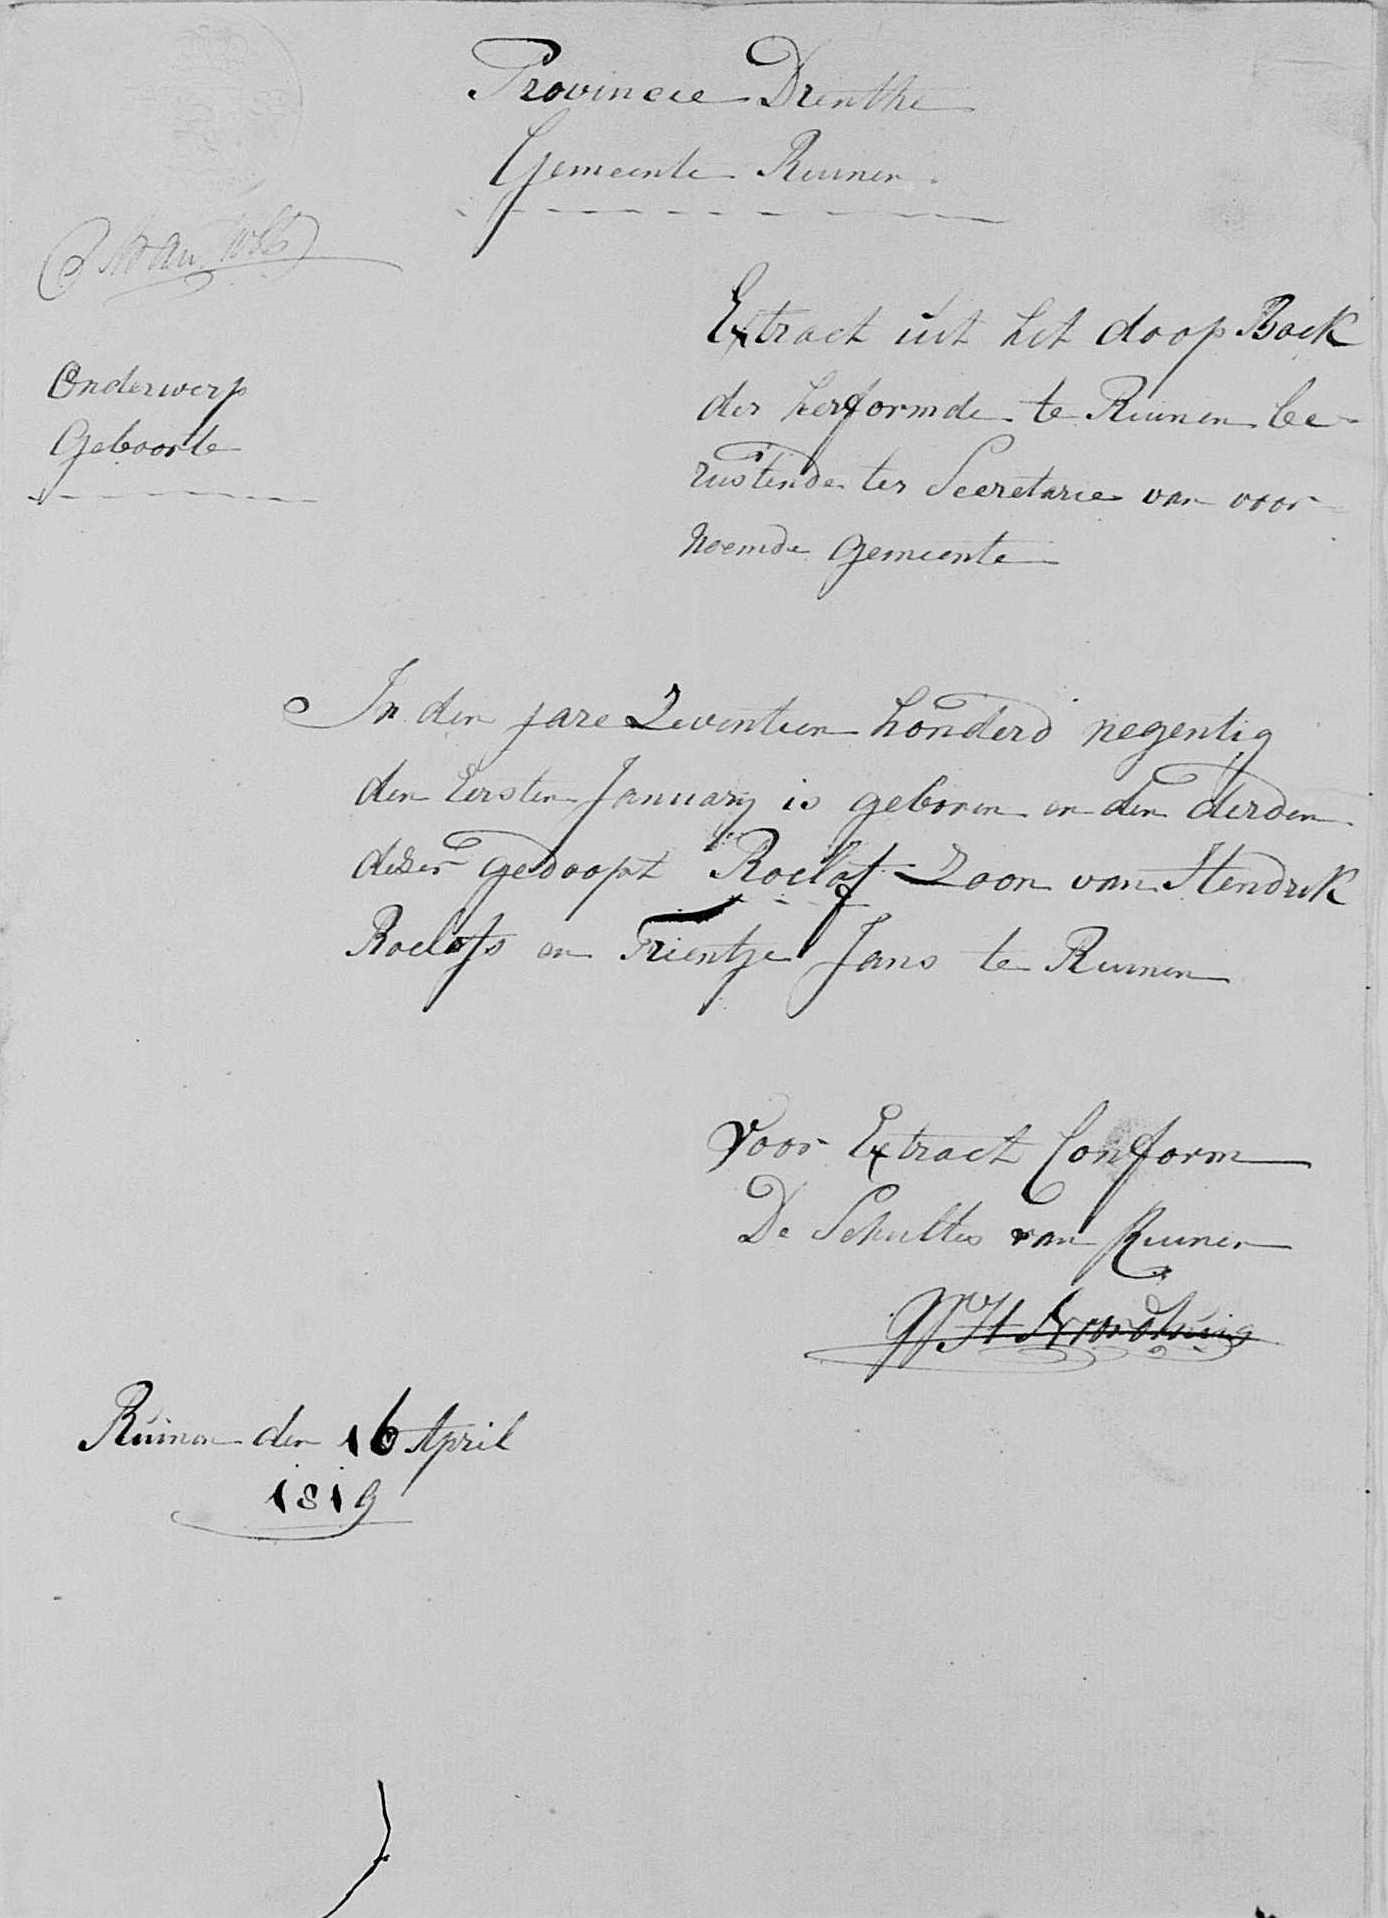 Provincie Drenthe
Gemeente Ruinen
Extract uit het doop Boek
Onderwerp
der herformde te Ruinen be-
Geboorte
rustende ter Secretarie van voor
noemde gemeente
In den jare Zeventien honderd negentig
den Eersten January is geboren en den derden
dezer gedoopt Roelof Zoon van Hendrik
Roelofs en Trientje Jans te Ruinen
Voor Extract Conform
De Schultes van Ruinen
Ruinen den 16 April
1819